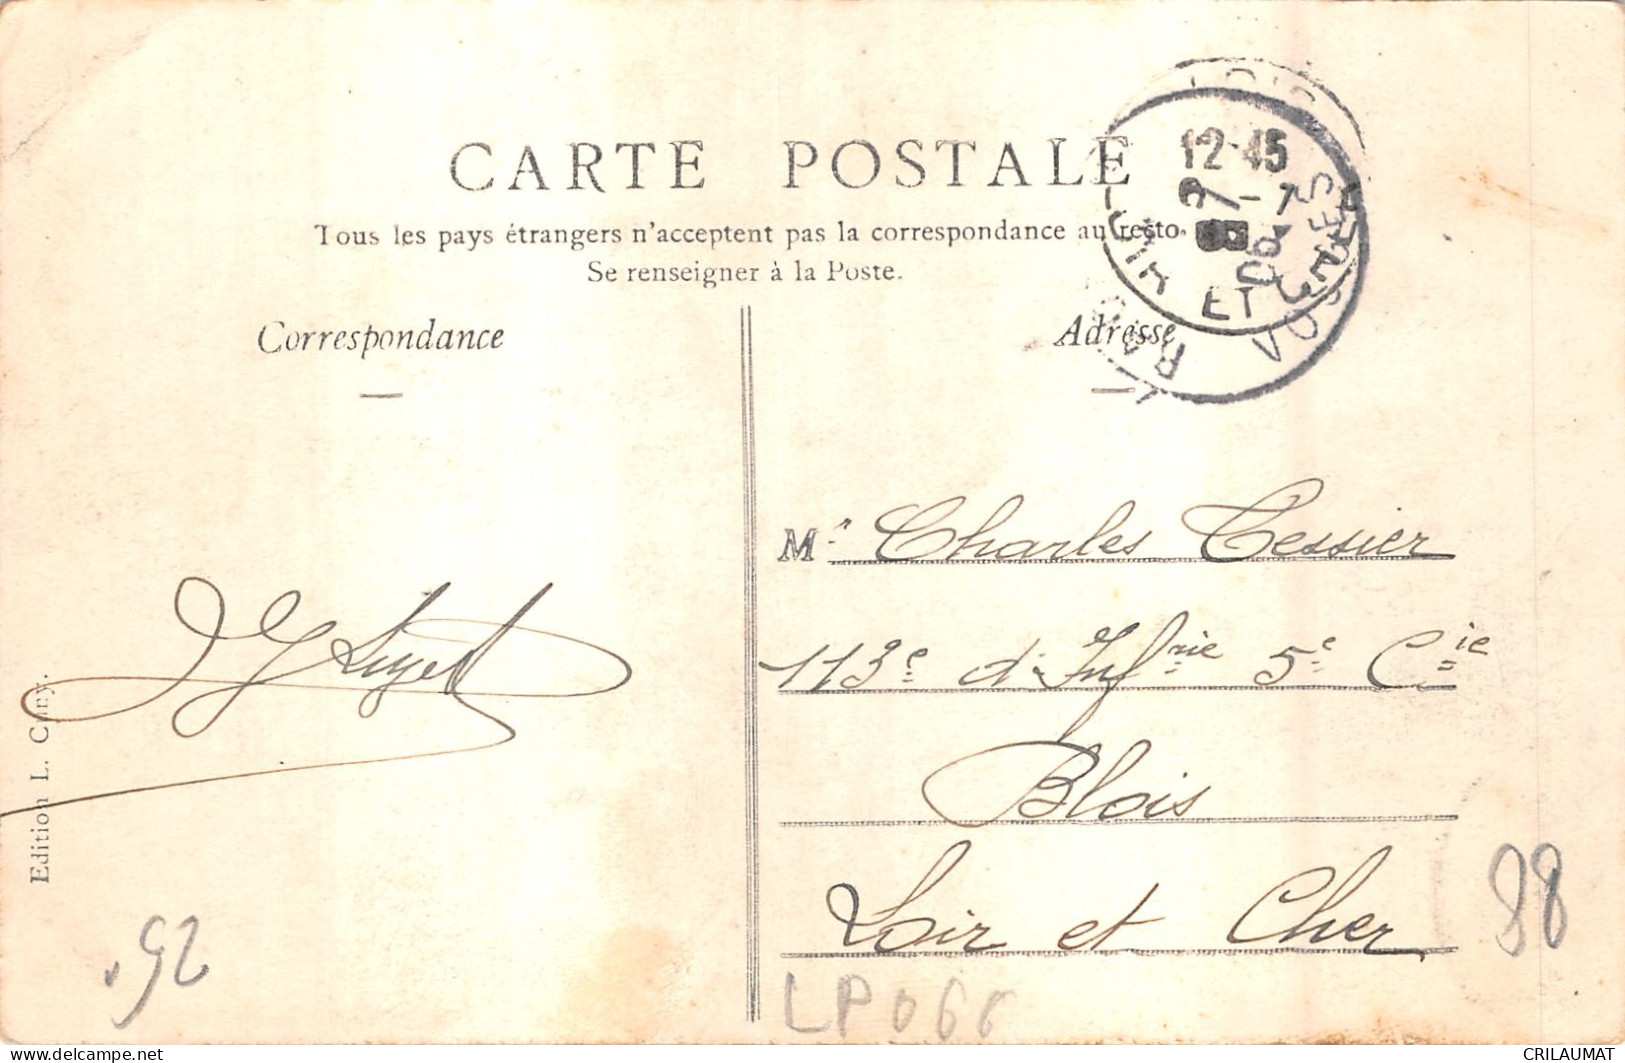 CARTE POSTALE
Tous les pays étrangers n'acceptent pas la correspondance au recto.
Se renseigner à la Poste.
Correspondance
Adresse
12-45
LOIR ET CHER
VOSGES
Mr Charles Tessier
113e d'Infrie 5e Cie
Blois
Loir et Cher
Edition L. Cuny.
88
LP066
delcampe.net
CRILAUMAT